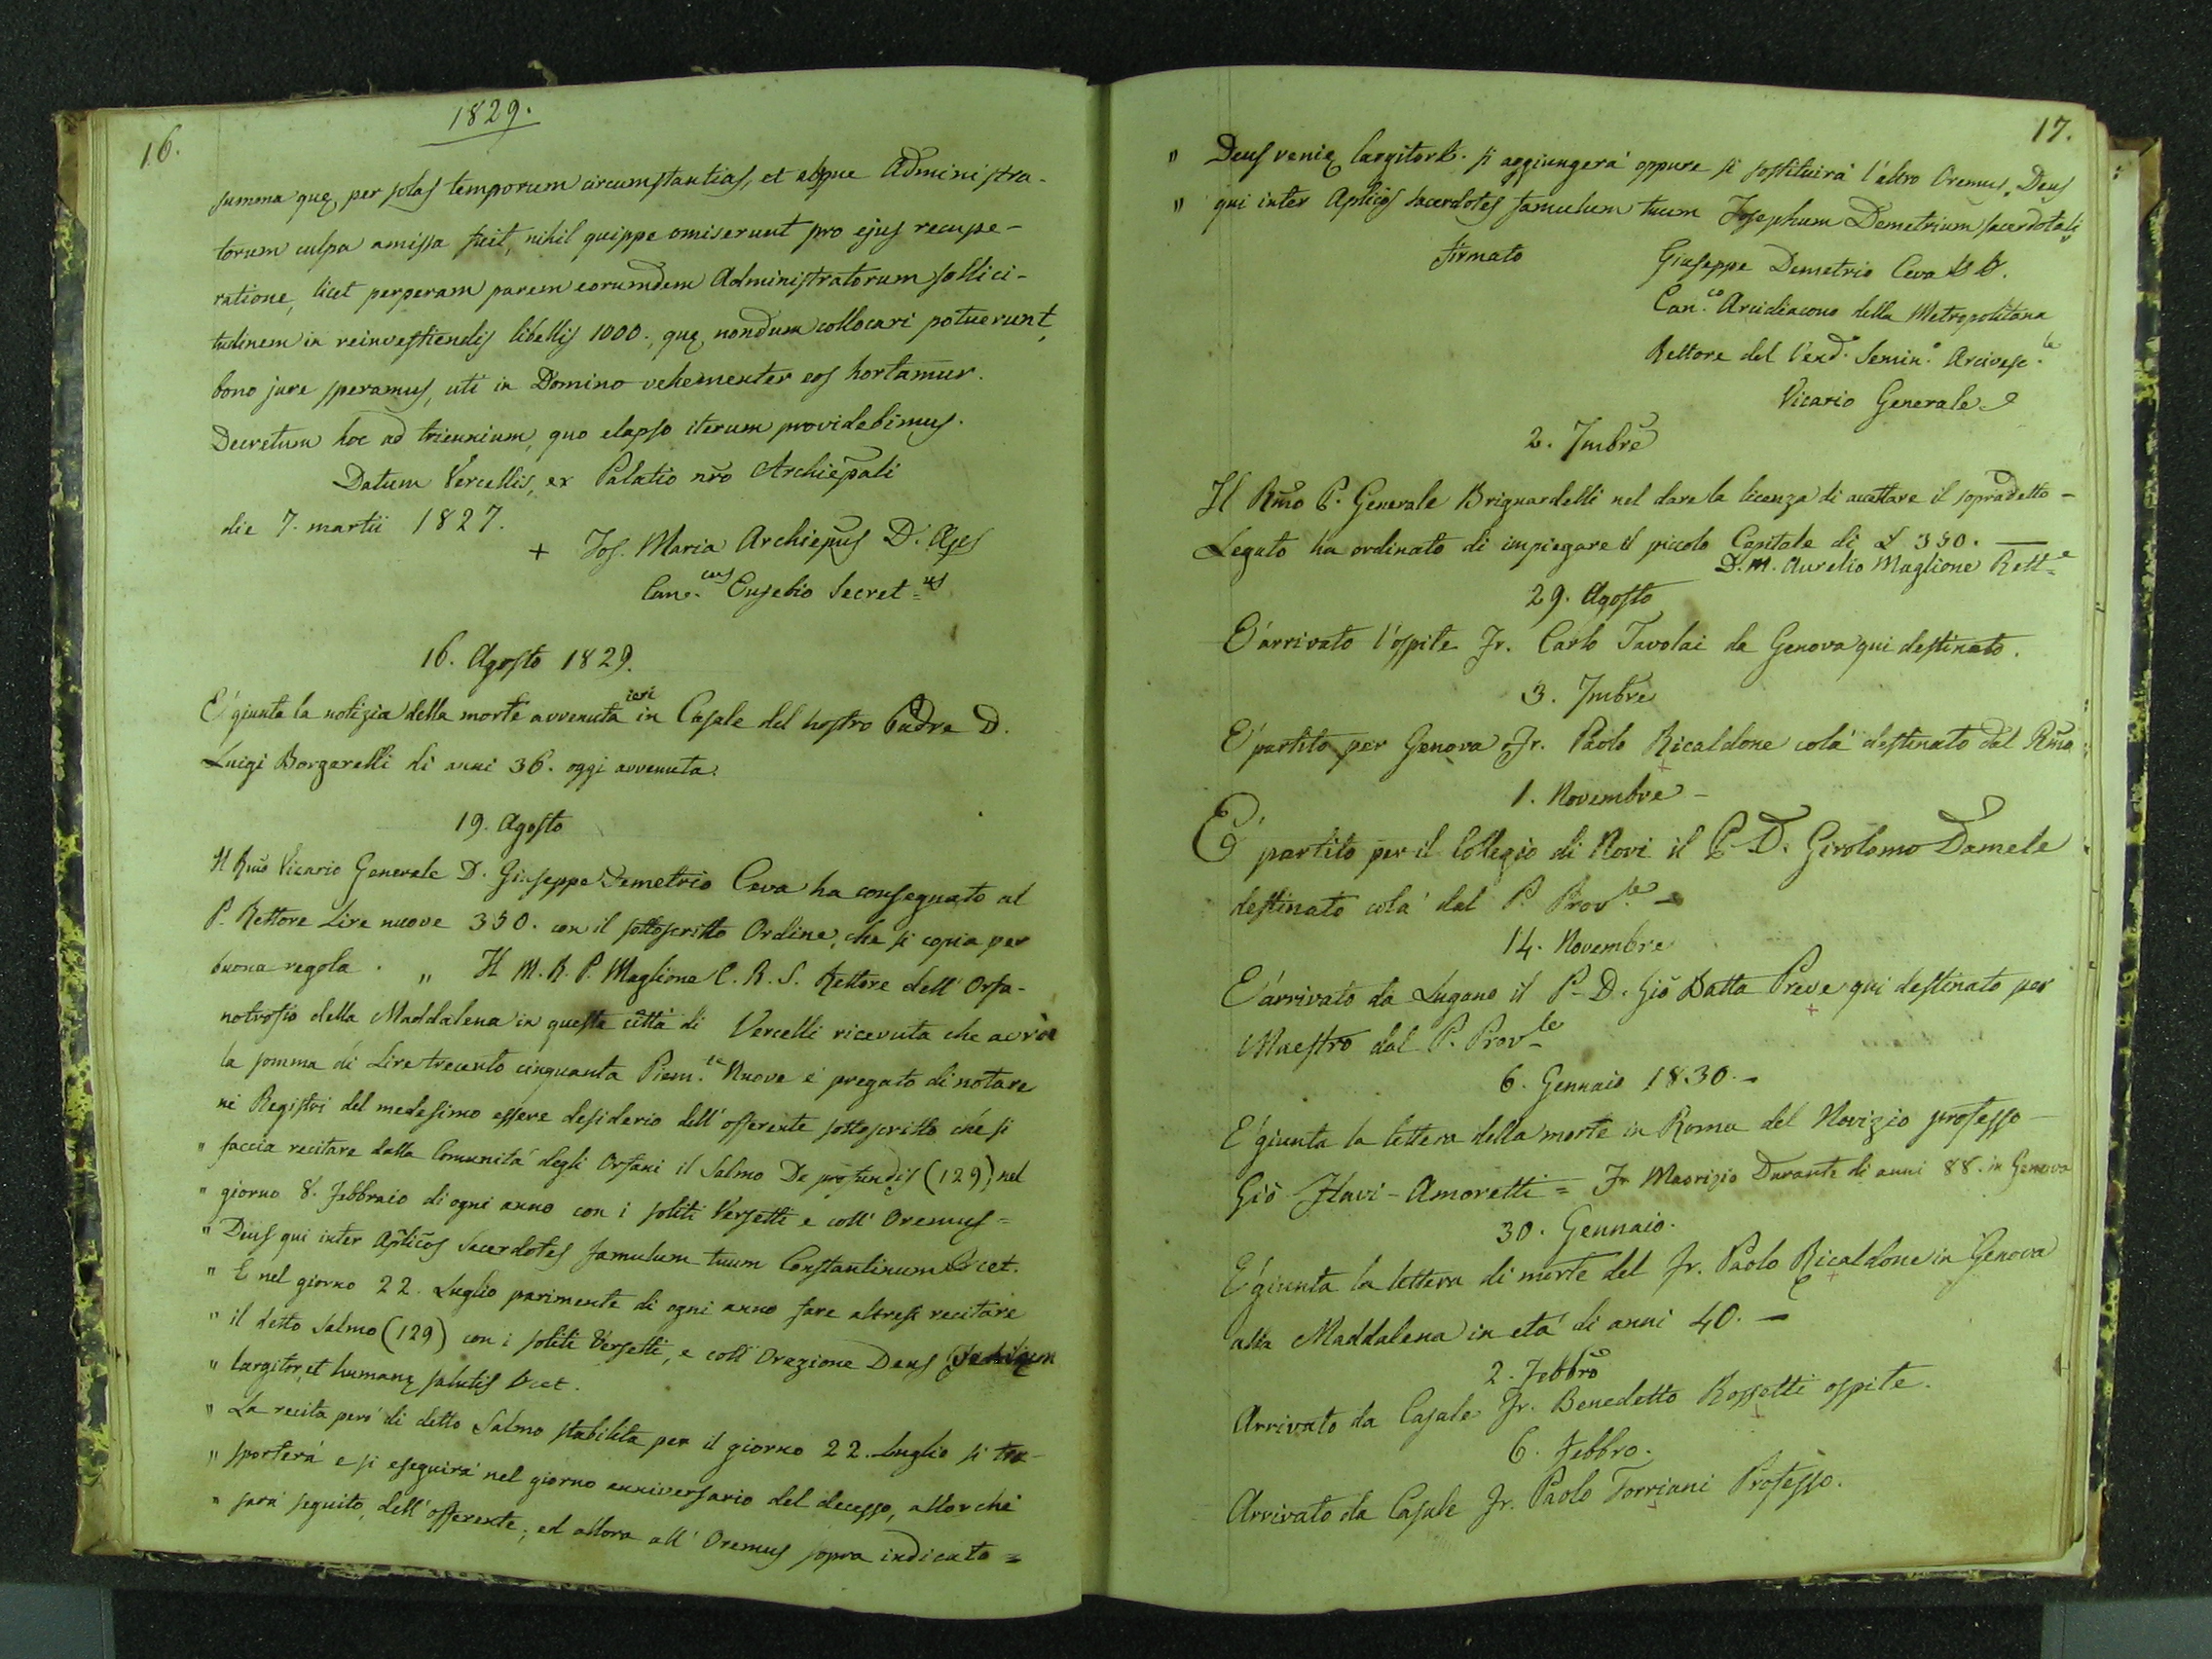 16.
1829.
summa quę per solas temporum circumstantias, et absque Administra-
torum culpa amissa fuit, nihil quippe omiserunt pro ejus recupe-
ratione, licet perperam parem eorumdem Administratorum sollici-
tudinem in reinvestiendis libellis 1000., quę nondum collocari potuerunt,
bono jure speramus, uti in Domino vehementer eos hortamur.
Decretum hoc ad triennium, quo elapso iterum providebimus.
Datum Vercellis, ex Palatio nro Archiepali
die 7. martii 1827.
+ Jos. Maria Archiepus D. Ages
Can.cus Eusebio Secret=us
16. Agosto 1829.
E' giunta la notizia della morte avvenuta ieri in Casale del nostro Padre D.
Luigi Borgarelli di anni 36. oggi avvenuta.
19. Agosto
Il Rmo Vicario Generale D. Giuseppe Demetrio Ceva ha consegnato al
P. Rettore Lire nuove 350. con il sottoscritto Ordine, che si copia per
buona regola. „ Il M. R. P. Maglione C. R. S. Rettore dell' Orfa-
notrofio della Maddalena in questa città di Vercelli ricevuta che avrà
la somma di Lire trecento cinquanta Piem.te Nuove è pregato di notare
ne Registri del medesimo essere desiderio dell' offerente sottoscritto ché si
" faccia recitare dalla Comunità degli Orfani il Salmo De profundis (129) nel
" giorno 8. Febbraio di ogni anno con i soliti Versetti e coll' Oremus =
" Deus qui inter Aplicos Sacerdotes famulum tuum Constantinum &cet.
" E nel giorno 22. Luglio parimente di ogni anno fare altresì recitare
" il detto Salmo (129) con i soliti Versetti, e coll' Orazione Deus
" largitor, et humanę salutis &cet.
" La recita però di detto Salmo stabilita per il giorno 22. Luglio si tra-
" sporterà e si eseguirà nel giorno anniversario del decesso, allorché
" sarà seguito, dell' offerente; ed allora all' Oremus sopra indicato =
17.
" Deus venię largitor &. si aggiungerà oppure si sostituirà l'altro Oremus, Deus
" qui inter Aplicos Sacerdotes famulum tuum Josephum Demetrium sacerdotali
firmato Giuseppe Demetrio Ceva
Can.co Arcidiacono della Metropolitana
Rettore del Vend. Semin.o Arcivesc.le
Vicario Generale
2. 7mbre
Il Rmo P. Generale Brignardelli nel dare la licenza di accettare il sopradetto -
Legato ha ordinato di impiegare il piccolo Capitale di £ 350. —
D. M. Aurelio Maglione Rett=e
29. Agosto
E' arrivato l'ospite Fr. Carlo Tavolai da Genova qui destinato.
3. 7mbre
E' partito per Genova Fr. Paolo Ricaldone colà destinato dal Rmo
1. Novembre -
E' partito per il Collegio di Novi il P. D. Girolamo Damele
destinato colà dal P. Prov.le -
14. Novembre
E' arrivato da Lugano il P. D. Gio Batta Preve qui destinato per
Maestro dal P. Prov=le
6. Gennaio 1830. -
E' giunta la lettera della morte in Roma del Novizio professo -
Gio Flavi - Amoretti = Fr Maorizio Durante di anni 88. in Genova
30. Gennaio.
E' giunta la lettera di morte del Fr. Paolo Ricaldone in Genova
alla Maddalena in età di anni 40. —
2. Febbro
Arrivato da Casale Fr. Benedetto Rossetti ospite.
6. Febbro.
Arrivato da Casale Fr. Paolo Torriani Professo.